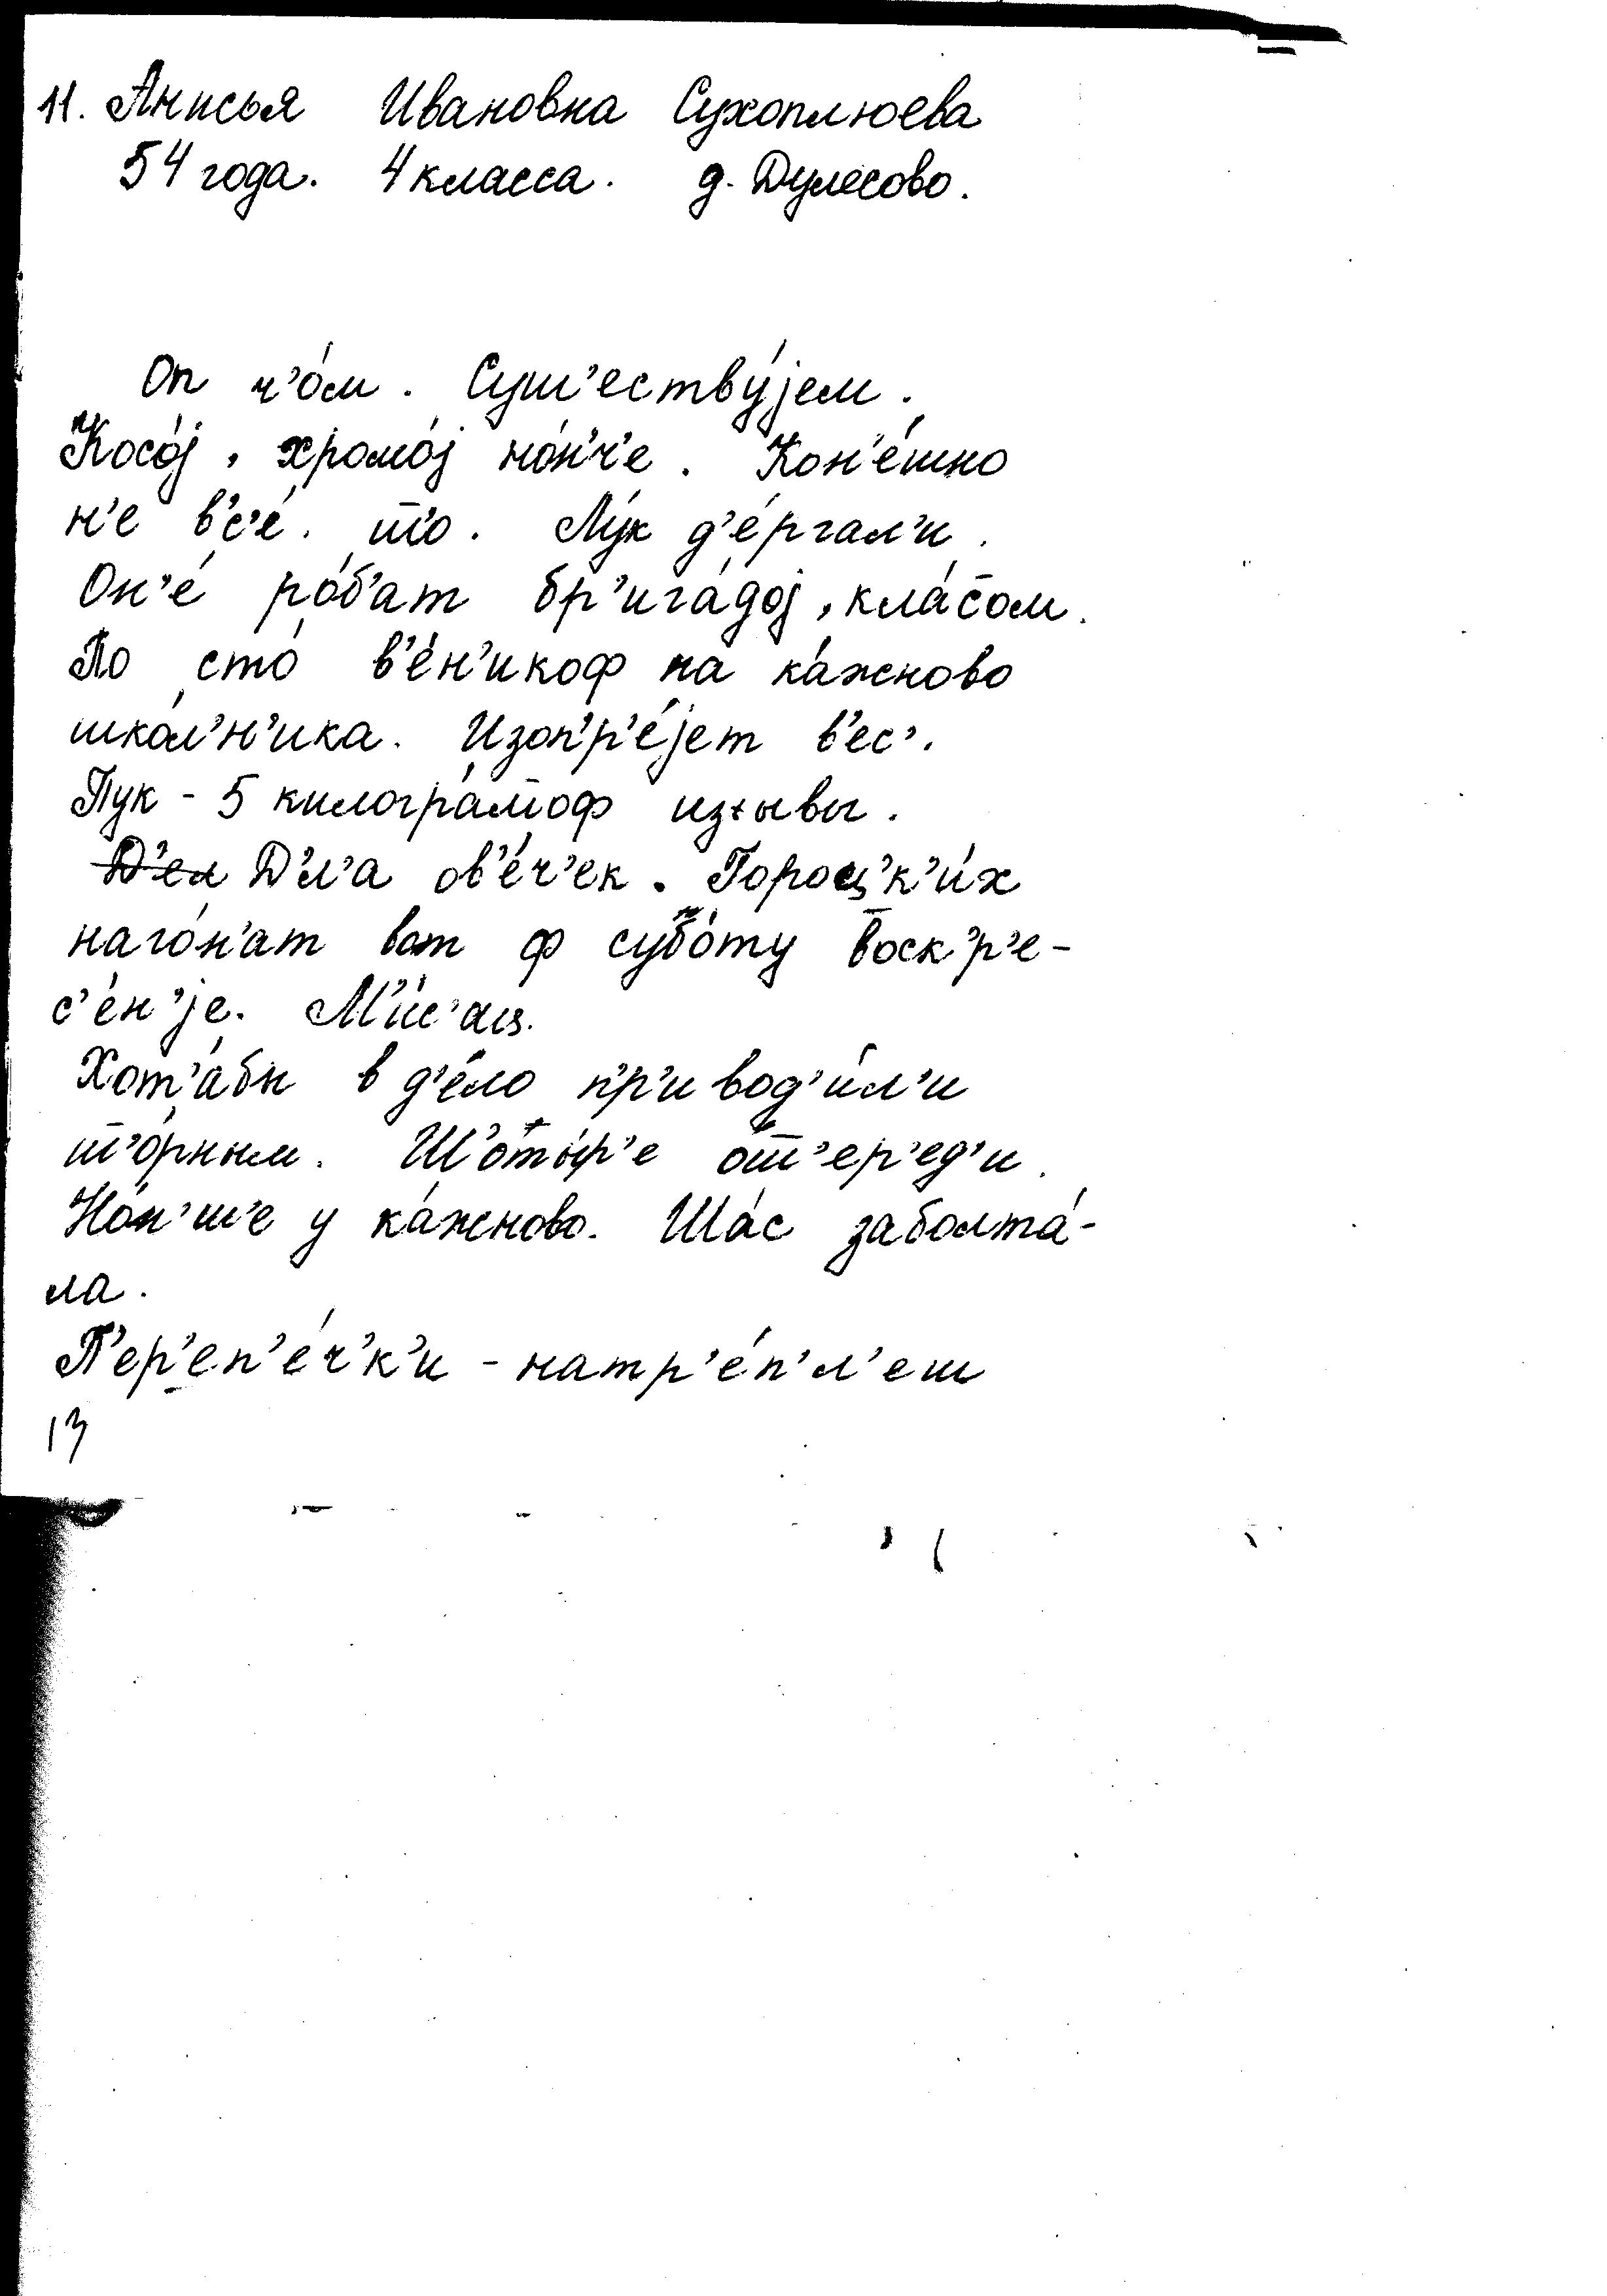 11. Анисья Ивановна Сухоплюева
54 года. 4 класса. д. Дулесово.
Оп ч'о́м. Суш'еству́jем.
Косо́j, хромо́j но́н'ч'е. Кон'е́шно
н'е в'с'е́. то. Лу́к д'е́ргал'и.
Он'е́ ро́б'ат бр'ига́доj, кла́с̄ом.
По сто́ в'е́н'икоф на ка́жново
шко́л'н'ика. Изоп'р'е́jет в'ес'.
Пук - 5 килогра́м̄оф из ывы.
Д'ел Д'л'а ов'е́ч'ек. Гороц'к'и́х
наго́н'ат вот ф субо́ту воск'р'е-
с'е́н'jе. М'и́с'ац.
Хот'а́бы в д'е́ло п'р'ивод'и́л'и
ш'о́рным. Ш'оты́р'е от'ер'ед'и.
Но́н'ш'е у ка́жново. Ша́с заболта́-
ла.
П'ер'еп'е́ч'к'и - натр'е́п'л'еш
13